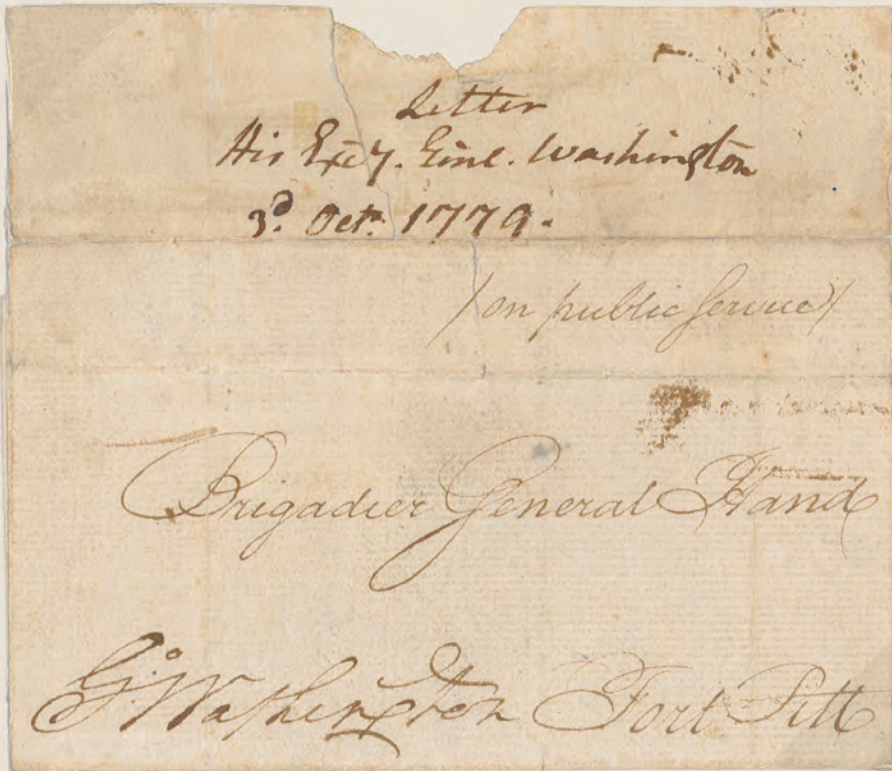 Letter
His Excy. Genl. Washington
3d. Octr. 1779.
/on public service/
Brigadier General Hand
Go: Washington Fort Pitt